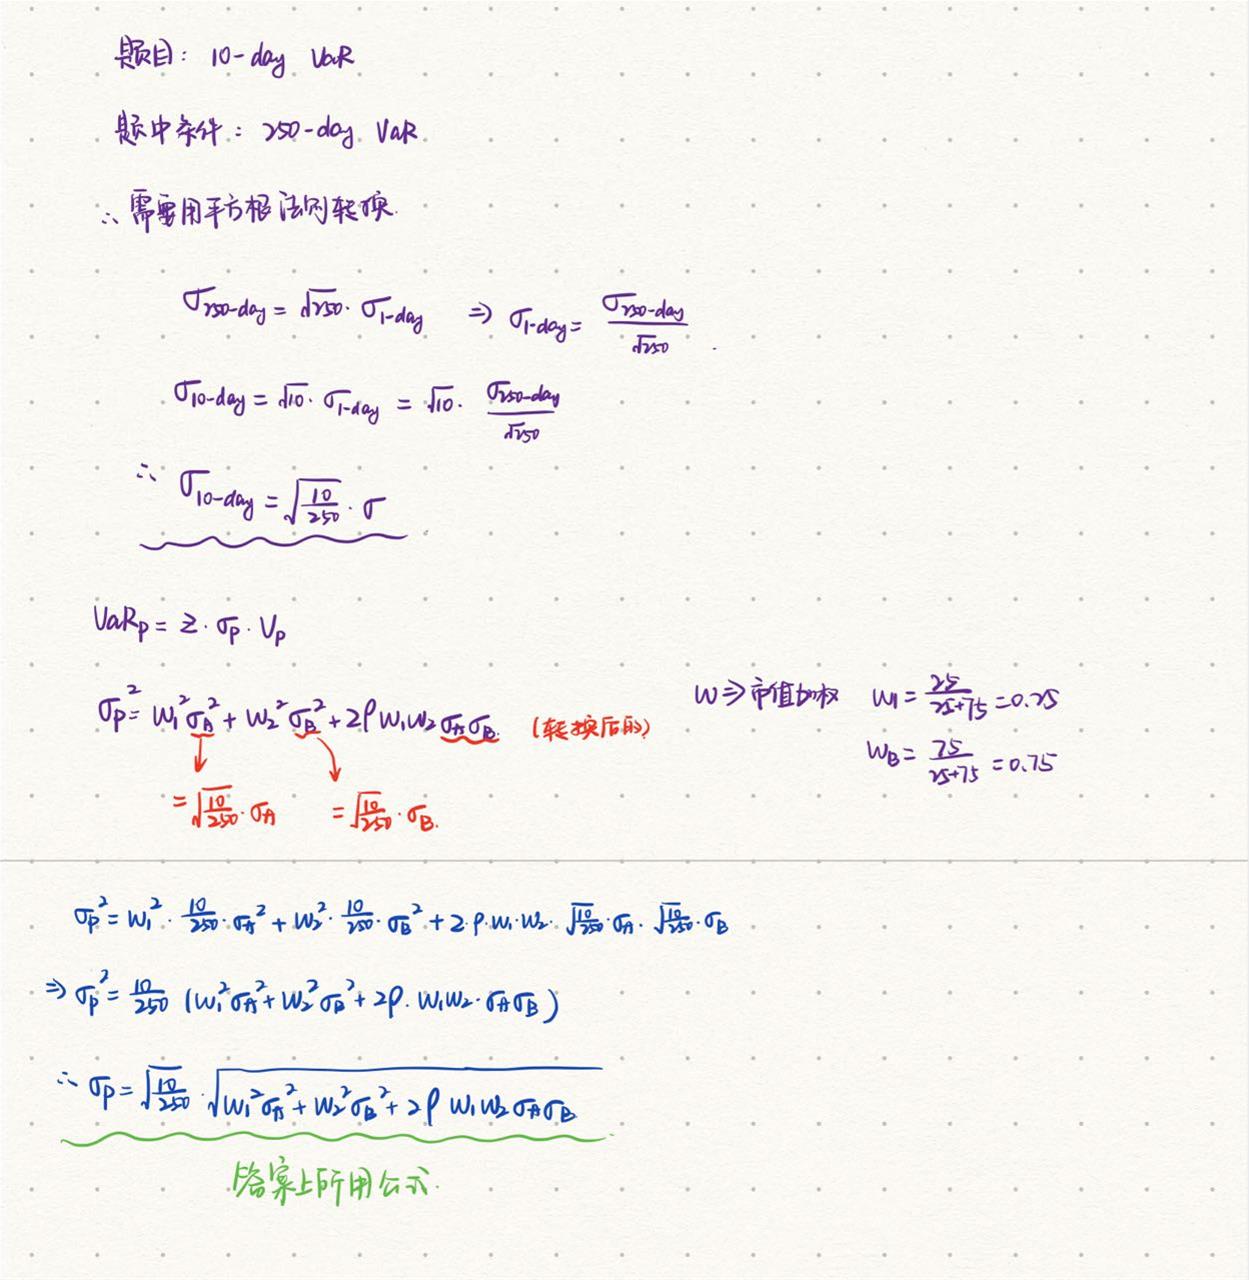 题目: 10-day VaR
题中条件: 250-day VaR
∴ 需要用平方根法则转换.
σ250-day = √250 · σ1-day ⇒ σ1-day = σ250-day / √250
σ10-day = √10 · σ1-day = √10 · σ250-day / √250
∴ σ10-day = √(10/250) · σ
VaRp = Z · σp · Vp
σp² = W1²σA² + W2²σB² + 2ρW1W2σAσB. (转换后的)
= √(10/250) · σA = √(10/250) · σB.
W ⇒ 市值加权 W1 = 25/(25+75) = 0.25
WB = 75/(25+75) = 0.75
σp² = W1² · 10/250 · σA² + W2² · 10/250 · σB² + 2·ρ·W1·W2 · √(10/250) · σA · √(10/250) · σB
⇒ σp² = 10/250 (W1²σA² + W2²σB² + 2ρ·W1W2·σAσB)
∴ σp = √(10/250) · √(W1²σA² + W2²σB² + 2ρW1W2σAσB)
答案上所用公式.